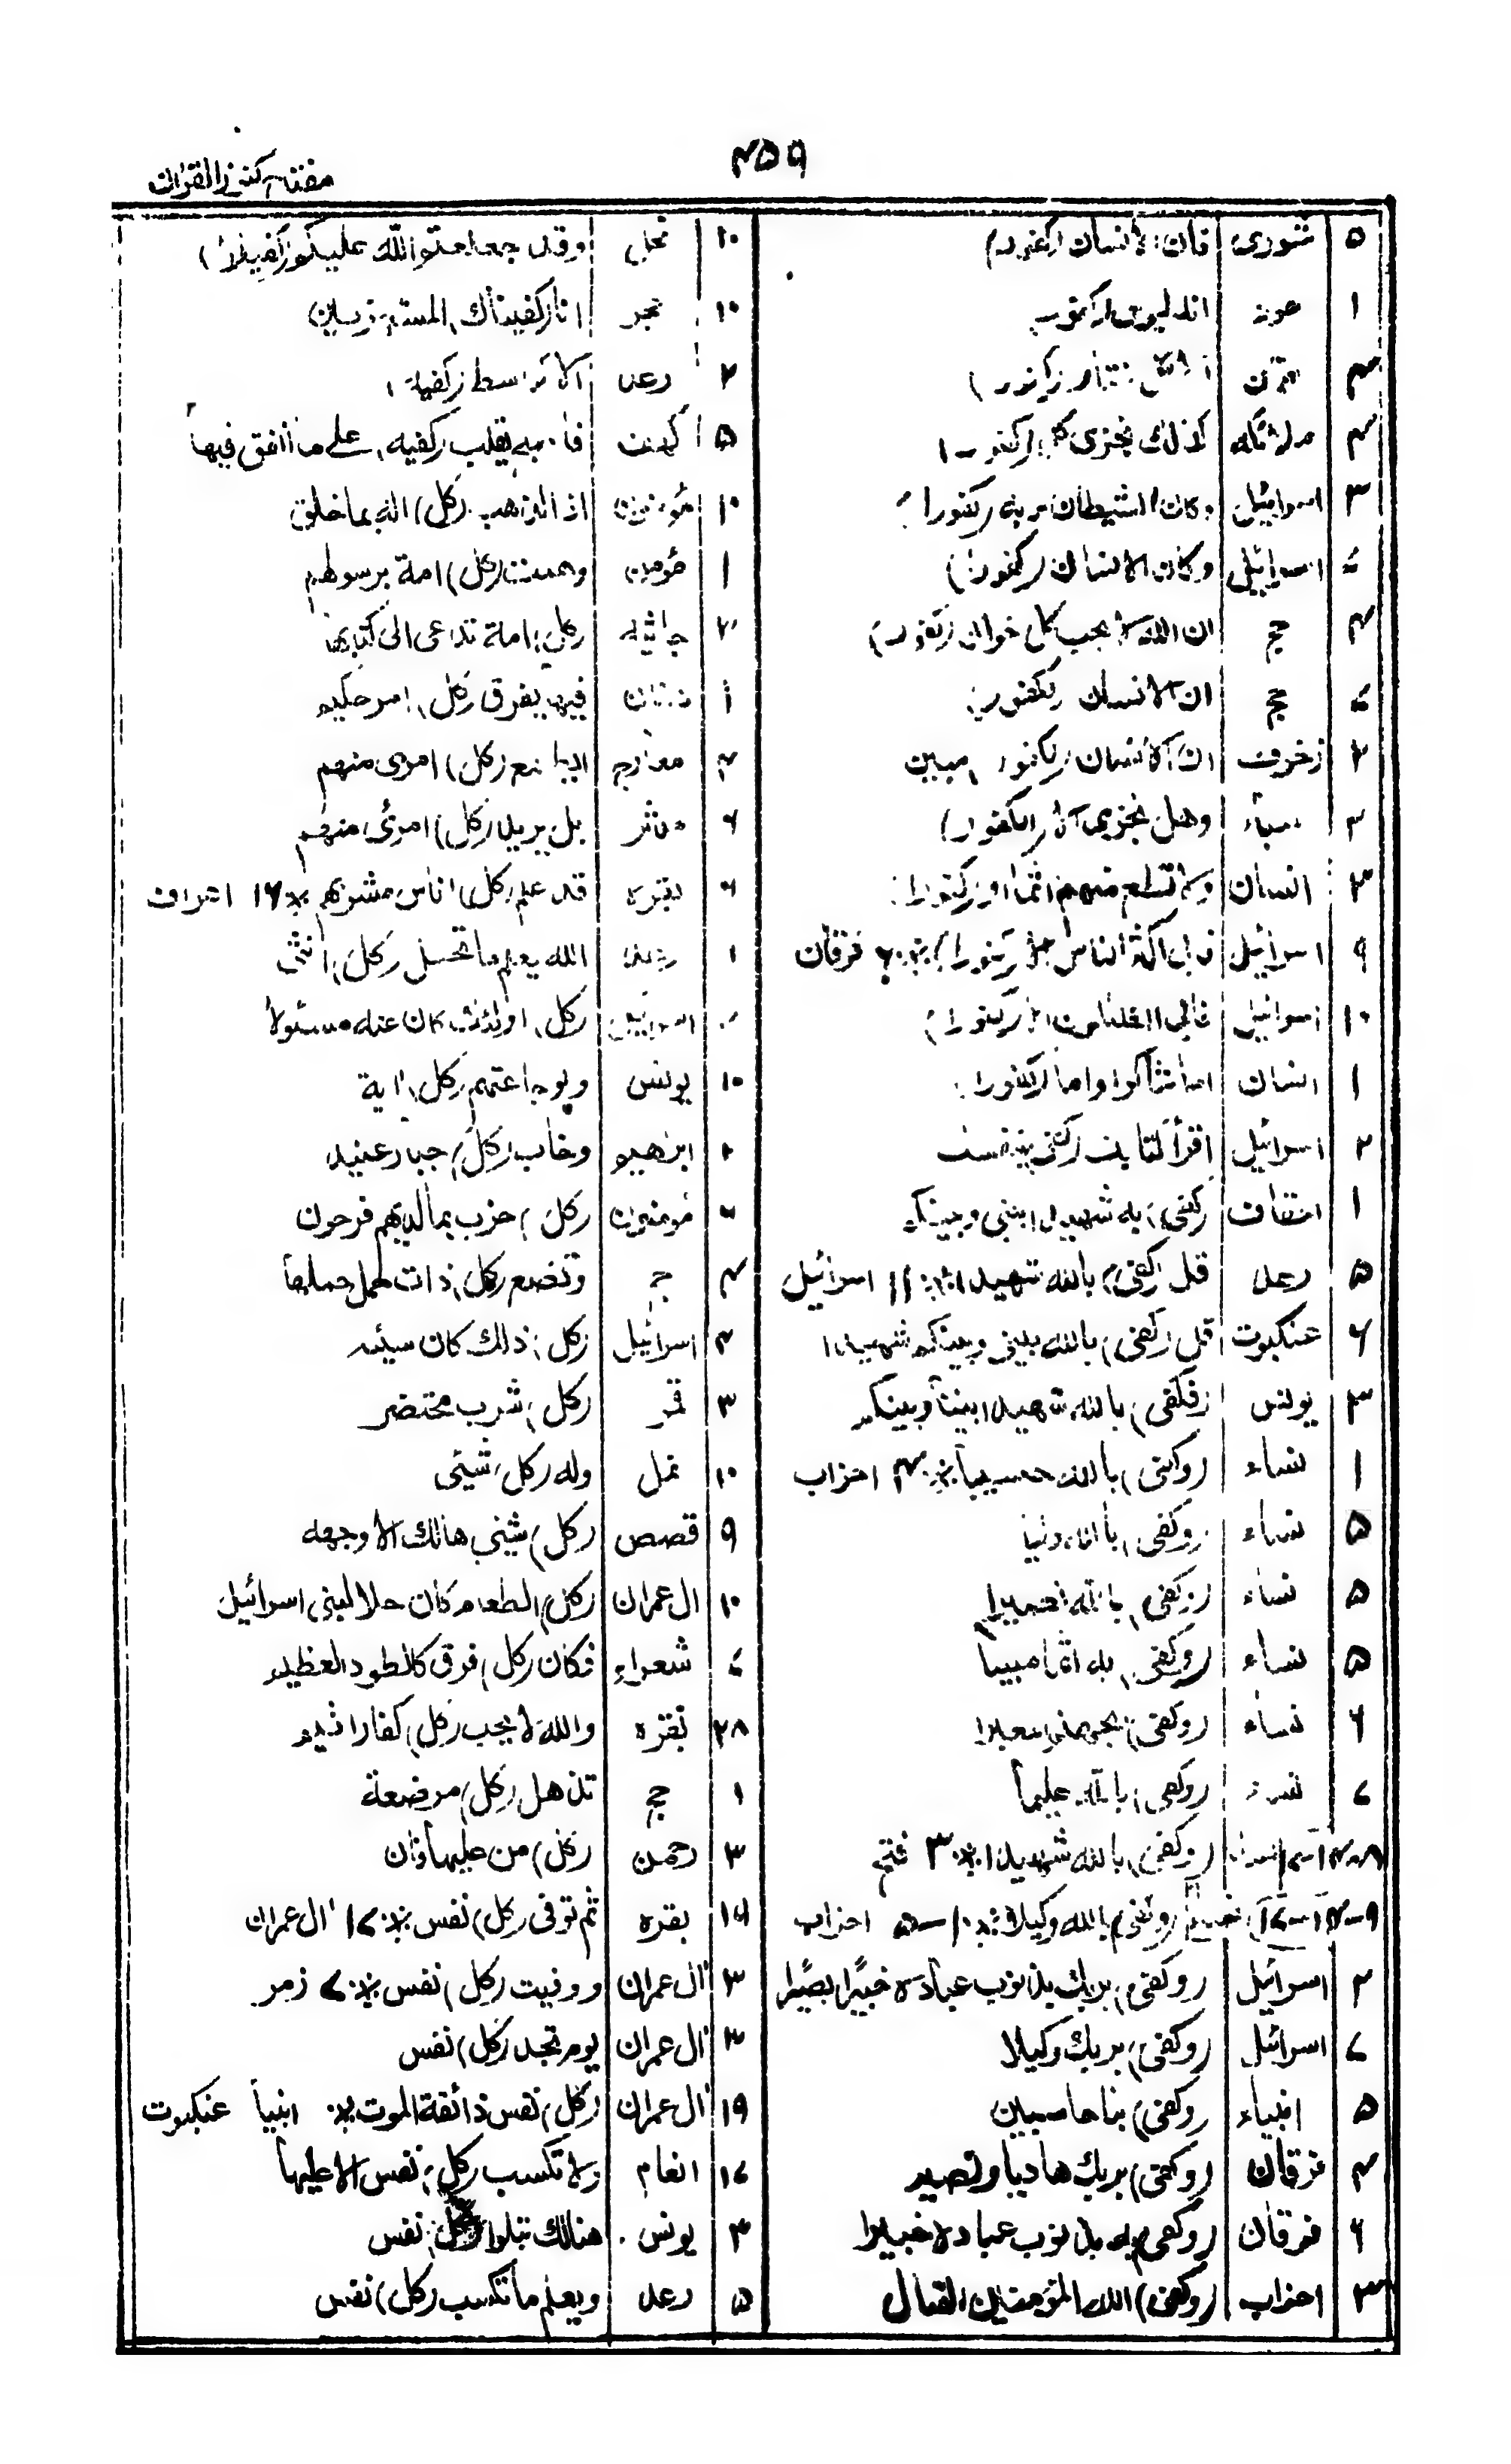 ۴۵۹
مفتاح کنز القرآن
۵ شوری فان الانسان (کفور)
۱ هود انه لیوس (کفور)
۴
۴ ملائکه کذلک نجزی کل (کفور)
۳ اسرائیل وکان الشیطان لربه (کفورا)
۷ اسرائیل وکان الانسان (کفورا)
۴ حج ان الله لا یحب کل خوان (کفور)
۷ حج ان الانسان (لکفور)
۲ زخرف ان الانسان (لکفور) مبین
۲ سباء وهل نجزی الا (الکفور)
۲ انسان ولا تطع منهم اثما او (کفورا)
۹ اسرائیل فابی اکثر الناس الا (کفورا) فرقان
۱۰ اسرائیل فابی الظلمون الا (کفورا)
۱ انسان اما شاکرا واما (کفورا)
۲ اسرائیل اقرأ کتابک (کفی) بنفسک
۱ احقاف (کفی) به شهیدا بینی وبینکم
۵ رعد قل (کفی) بالله شهیدا ۱۱ اسرائیل
۶ عنکبوت قل (کفی) بالله بینی وبینکم شهیدا
۳ یونس (فکفی) بالله شهیدا بیننا وبینکم
۱ نساء (وکفی) بالله حسیبا ۴ احزاب
۵ نساء (وکفی) بالله ولیا
۵ نساء (وکفی) بالله نصیرا
۵ نساء (وکفی) به اثما مبینا
۶ نساء (وکفی) بجهنم سعیرا
۷ نساء (وکفی) بالله علیما
نساء (وکفی) بالله شهیدا ۳ فتح
نساء (وکفی) بالله وکیلا ۱-۵ احزاب
۲ اسرائیل (وکفی) بربک بذنوب عباده خبیرا بصیرا
۷ اسرائیل (وکفی) بربک وکیلا
۵ انبیاء (وکفی) بنا حاسبین
۴ فرقان (وکفی) بربک هادیا ونصیر
۶ فرقان (وکفی) به بذنوب عباده خبیرا
۳ احزاب (وکفی) الله المؤمنین القتال
۱۰ نحل وقد جعلتم الله علیکم (کفیلا)
۱۰ حجر انا (کفیناک) المستهزئین
۲ رعد الا کباسط (کفیه)
۵ کهف فاصبح یقلب (کفیه) علی ما انفق فیها
۱۰ مؤمنون اذا لذهب (کل) اله بما خلق
۱ مؤمن وهمت (کل) امة برسولهم
۴ جاثیه (کل) امة تدعی الی کتابها
۱ دخان فیها یفرق (کل) امر حکیم
۲ معارج ایطمع (کل) امرئ منهم
۲ مدثر بل یرید (کل) امرئ منهم
بقره قد علم (کل) اناس مشربهم اعراف
رعد الله یعلم ما تحمل (کل) انثی
اسرائیل (کل) اولئک کان عنه مسئولا
۱۰ یونس ولو جاءتهم (کل) ایة
ابرهیم وخاب (کل) جبار عنید
مؤمنون (کل) حزب بما لدیهم فرحون
حج وتضع (کل) ذات حمل حملها
۴ اسرائیل (کل) ذلک کان سیئه
۳ قمر (کل) شرب محتضر
۱۰ نمل وله (کل) شیئ
۹ قصص (کل) شیئ هالک الا وجهه
۱۰ ال عمران (کل) الطعام کان حلا لبنی اسرائیل
۷ شعراء فکان (کل) فرق کالطود العظیم
۲۸ بقره والله لا یحب (کل) کفار اثیم
۱ حج تذهل (کل) مرضعة
۳ رحمن (کل) من علیها فان
بقره ثم توفی (کل) نفس ۱۷ ال عمران
۳ ال عمران ووفیت (کل) نفس ۷ زمر
۳ ال عمران یوم تجد (کل) نفس
۱۹ ال عمران (کل) نفس ذائقة الموت انبیا عنکبوت
۱۷ انعام ولا تکسب (کل) نفس الا علیها
۳ یونس هنالک تبلوا (کل) نفس
۵ رعد ویعلم ما تکسب (کل) نفس